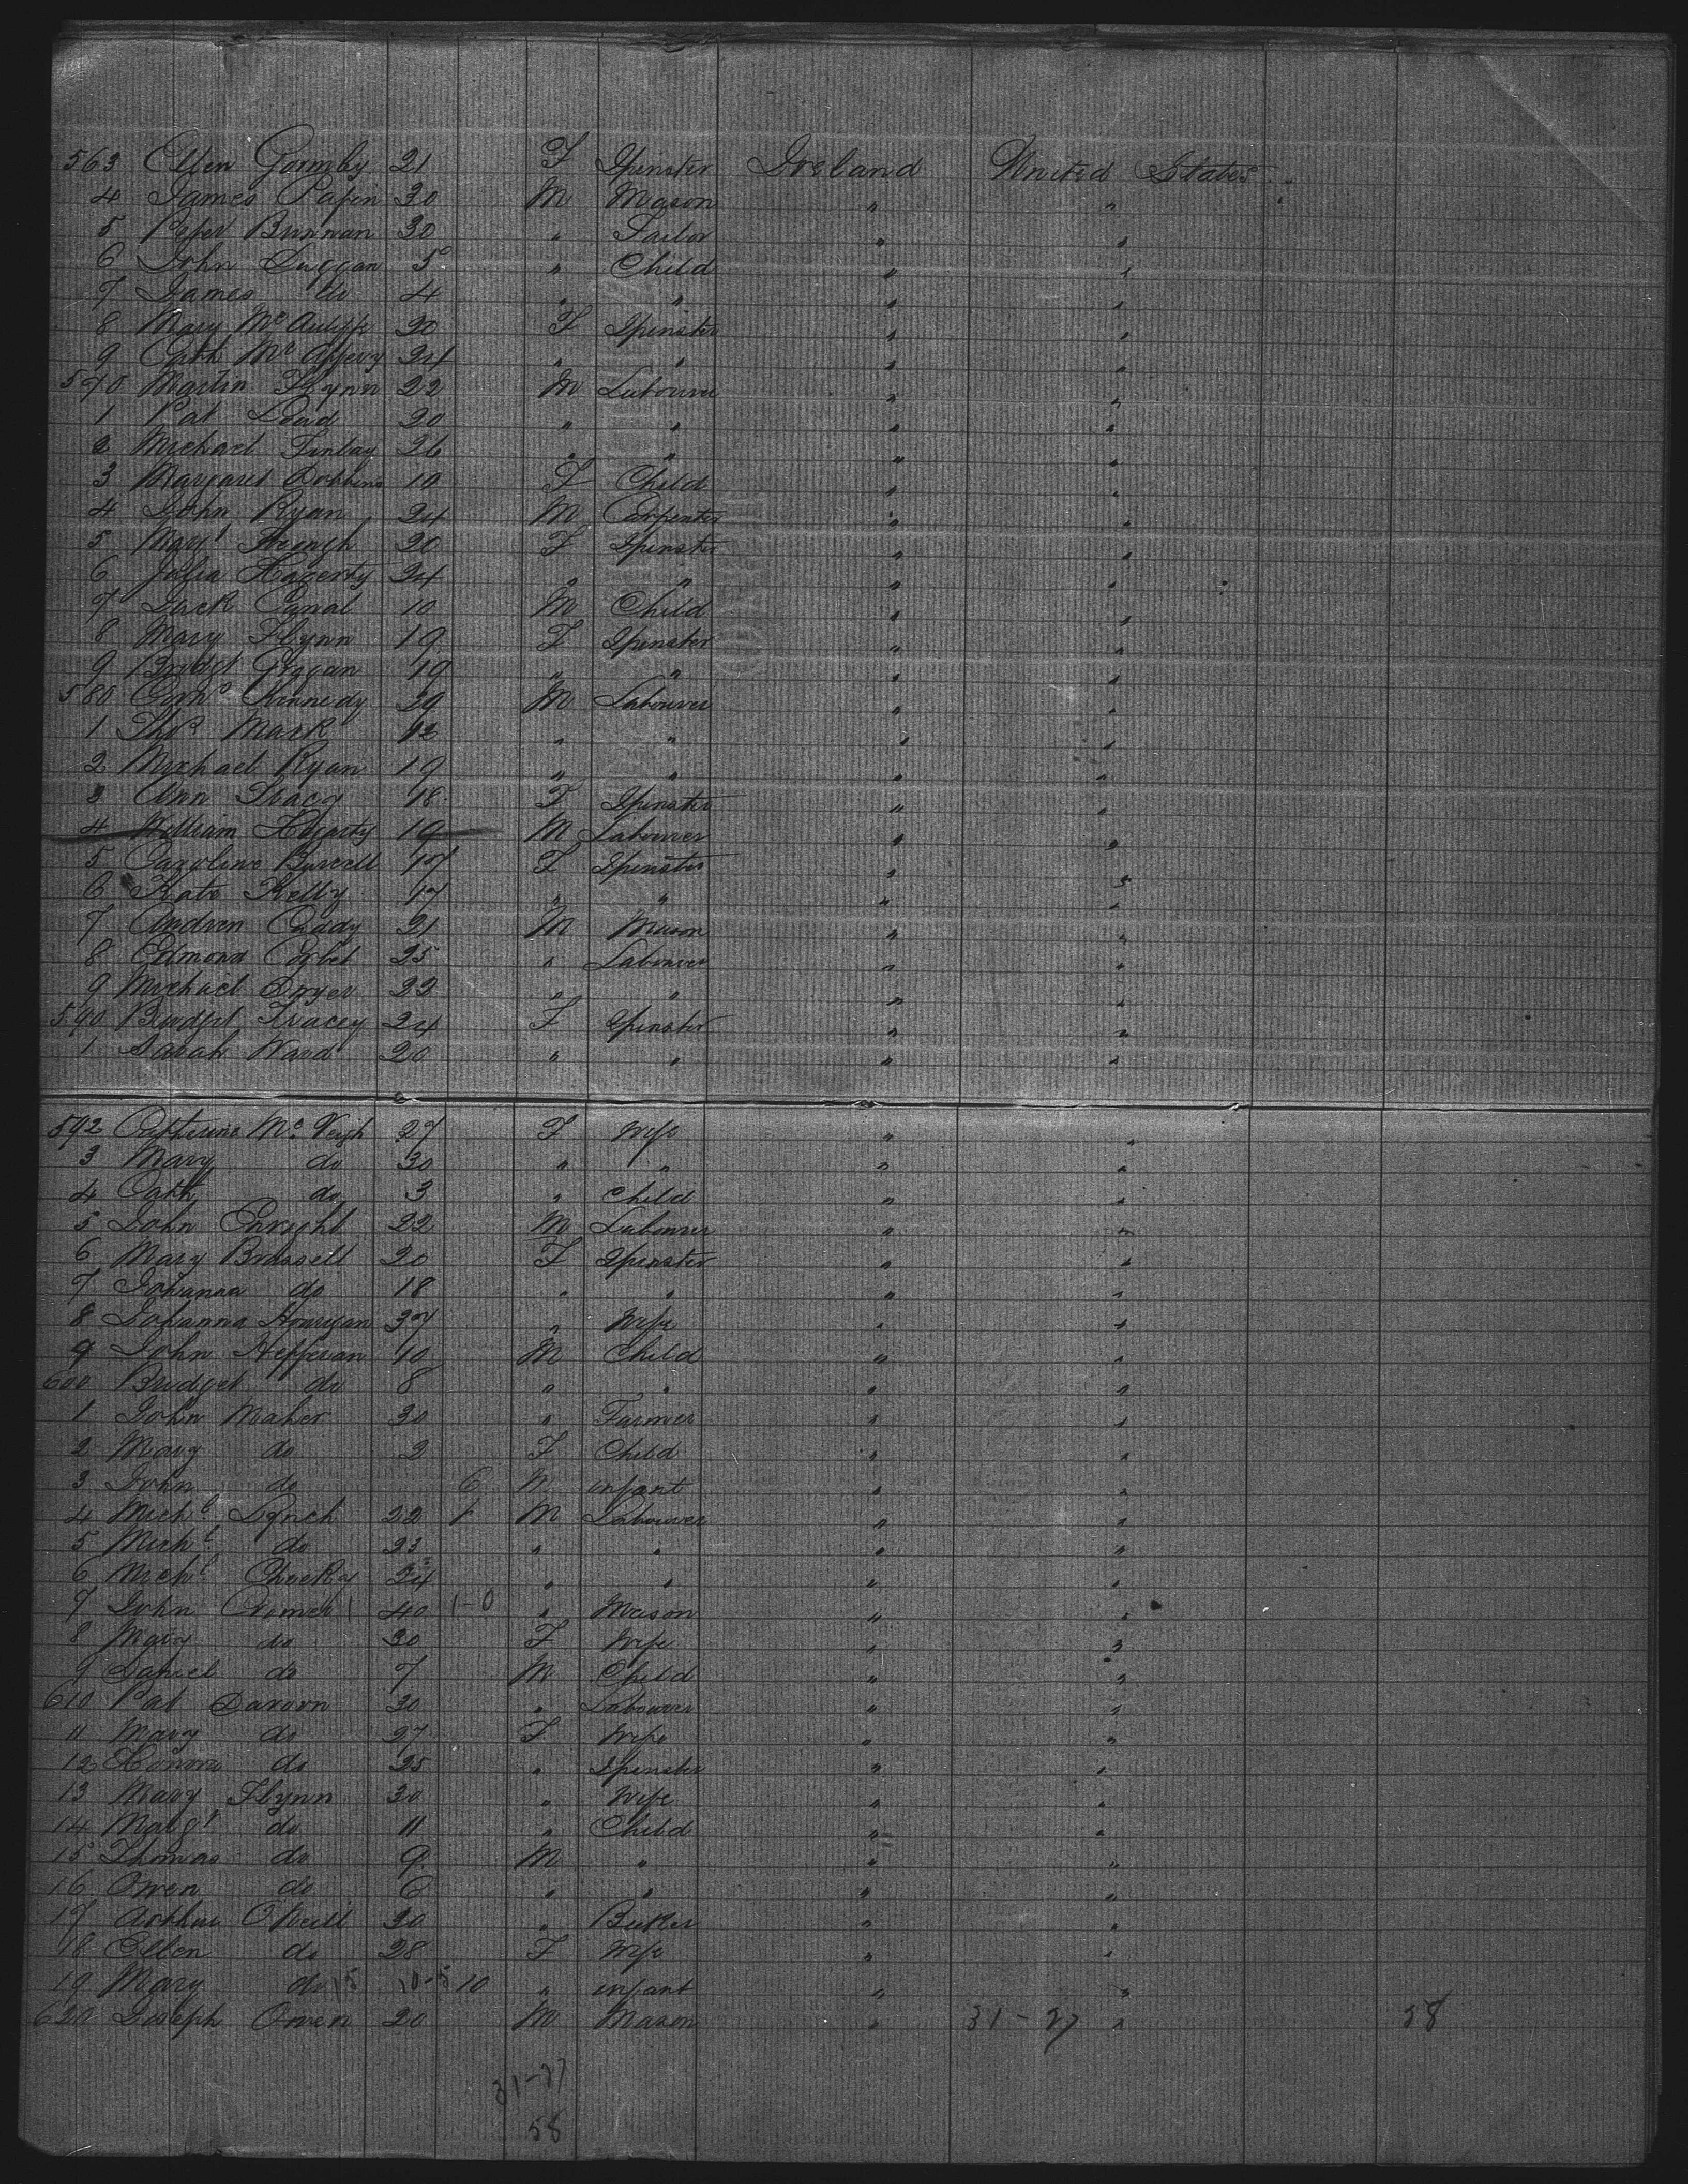 563 Ellen Gormby 21 F Spinster Ireland United States
4 James Pafin 30 M Mason " "
5 Peter Brennan 30 " Tailor " "
6 John Duggan 5 " Child " "
7 James do 4 " " " "
8 Mary McAuliffe 20 F Spinster " "
9 Cath Mc 24 " " " "
570 Martin Flynn 22 M Labourer " "
1 Pat 20 " " " "
2 Michael Finlay 26 " " " "
3 Margaret Dobbins 10 F Child " "
4 John Ryan 24 M Carpenter " "
5 Margt French 20 F Spinster " "
6 Hagerty 24 " " " "
7 Canal 10 M Child " "
8 Mary Flynn 19 F Spinster " "
9 Bridget Grogan 19 " " " "
580 Corns Kennedy 29 M Labourer " "
1 Thos Mack 12 " " " "
2 Michael Ryan 19 " " " "
3 Ann Tracy 18 F Spinster " "
4 William Hegarty 19 M Labourer " "
5 Caroline Burrell 17 F Spinster " "
6 Kate Kelly 17 " " " "
7 Andrew Caddy 21 M Mason " "
8 Edmond Corbet 25 " Labourer " "
9 Michael Dwyer 22 " " " "
590 Bridget Tracey 24 F Spinster " "
1 Sarah Ward 20 " " " "
592 Catherine Mc Veigh 27 F Wife " "
3 Mary do 30 " " " "
4 Cath do 3 " Child " "
5 John Enright 22 M Labourer " "
6 Mary Brassell 20 F Spinster " "
7 Johanna do 18 " " " "
8 Johanna Hourigan 37 " Wife " "
9 John Hefferan 10 M Child " "
600 Bridget do 8 " " " "
1 John Maher 30 " Farmer " "
2 Mary do 2 F Child " "
3 John do 6 M infant " "
4 Michl Lynch 22 M Labourer " "
5 Michl do 23 " " " "
6 Michl 24 " " " "
7 John Cromer 40 1-0 " Mason " "
8 Mary do 30 F Wife " "
9 Daniel do 7 M Child " "
610 Pat Davorn 30 " Labourer " "
11 Mary do 27 F Wife " "
12 Honora do 25 " Spinster " "
13 Mary Flynn 30 " Wife " "
14 Margt do 11 " Child " "
15 Thomas do 9 M " " "
16 Owen do 6 " " " "
17 Arthur O'Neill 30 " Baker " "
18 Ellen do 28 F Wife " "
19 Mary do 15 10-5 10 " infant " "
620 Joseph Owen 20 M Mason " 31-27 " 58
31-27
58